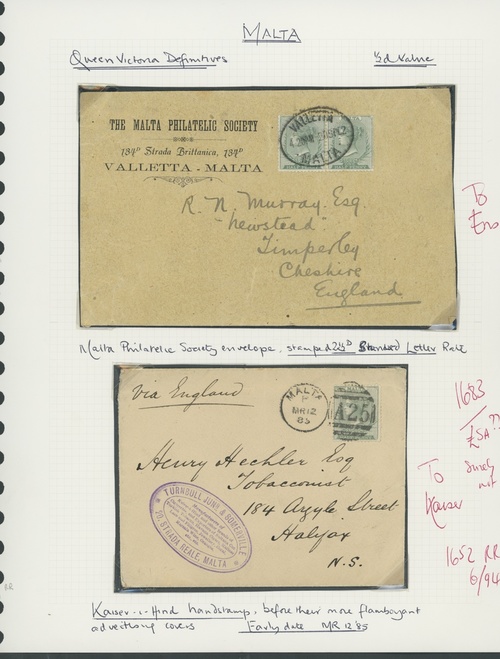 MALTA
Queen Victoria Definitives
½d Value
THE MALTA PHILATELIC SOCIETY
134D Strada Brittanica, 134D
VALLETTA - MALTA
VALLETTA
MALTA
R. N. Murray. Esq.
"Newstead"
Timperley
Cheshire
England
To
Malta Philatelic Society envelope, stamped Standard Letter Rate
via England
MALTA
F
MR 12
85
A25
Henry Hechler Esq
Tobacconist
184 Argyle Street
Halifax
N.S.
TURNBULL JUNR & SOMERVILLE
STRADA REALE, MALTA
1683
£5A ??
Surely
not
To
Kaiser
1652 RR
6/94
Kaiser-i-Hind handstamp, before their more flamboyant
advertising covers
Early date MR 12 '85